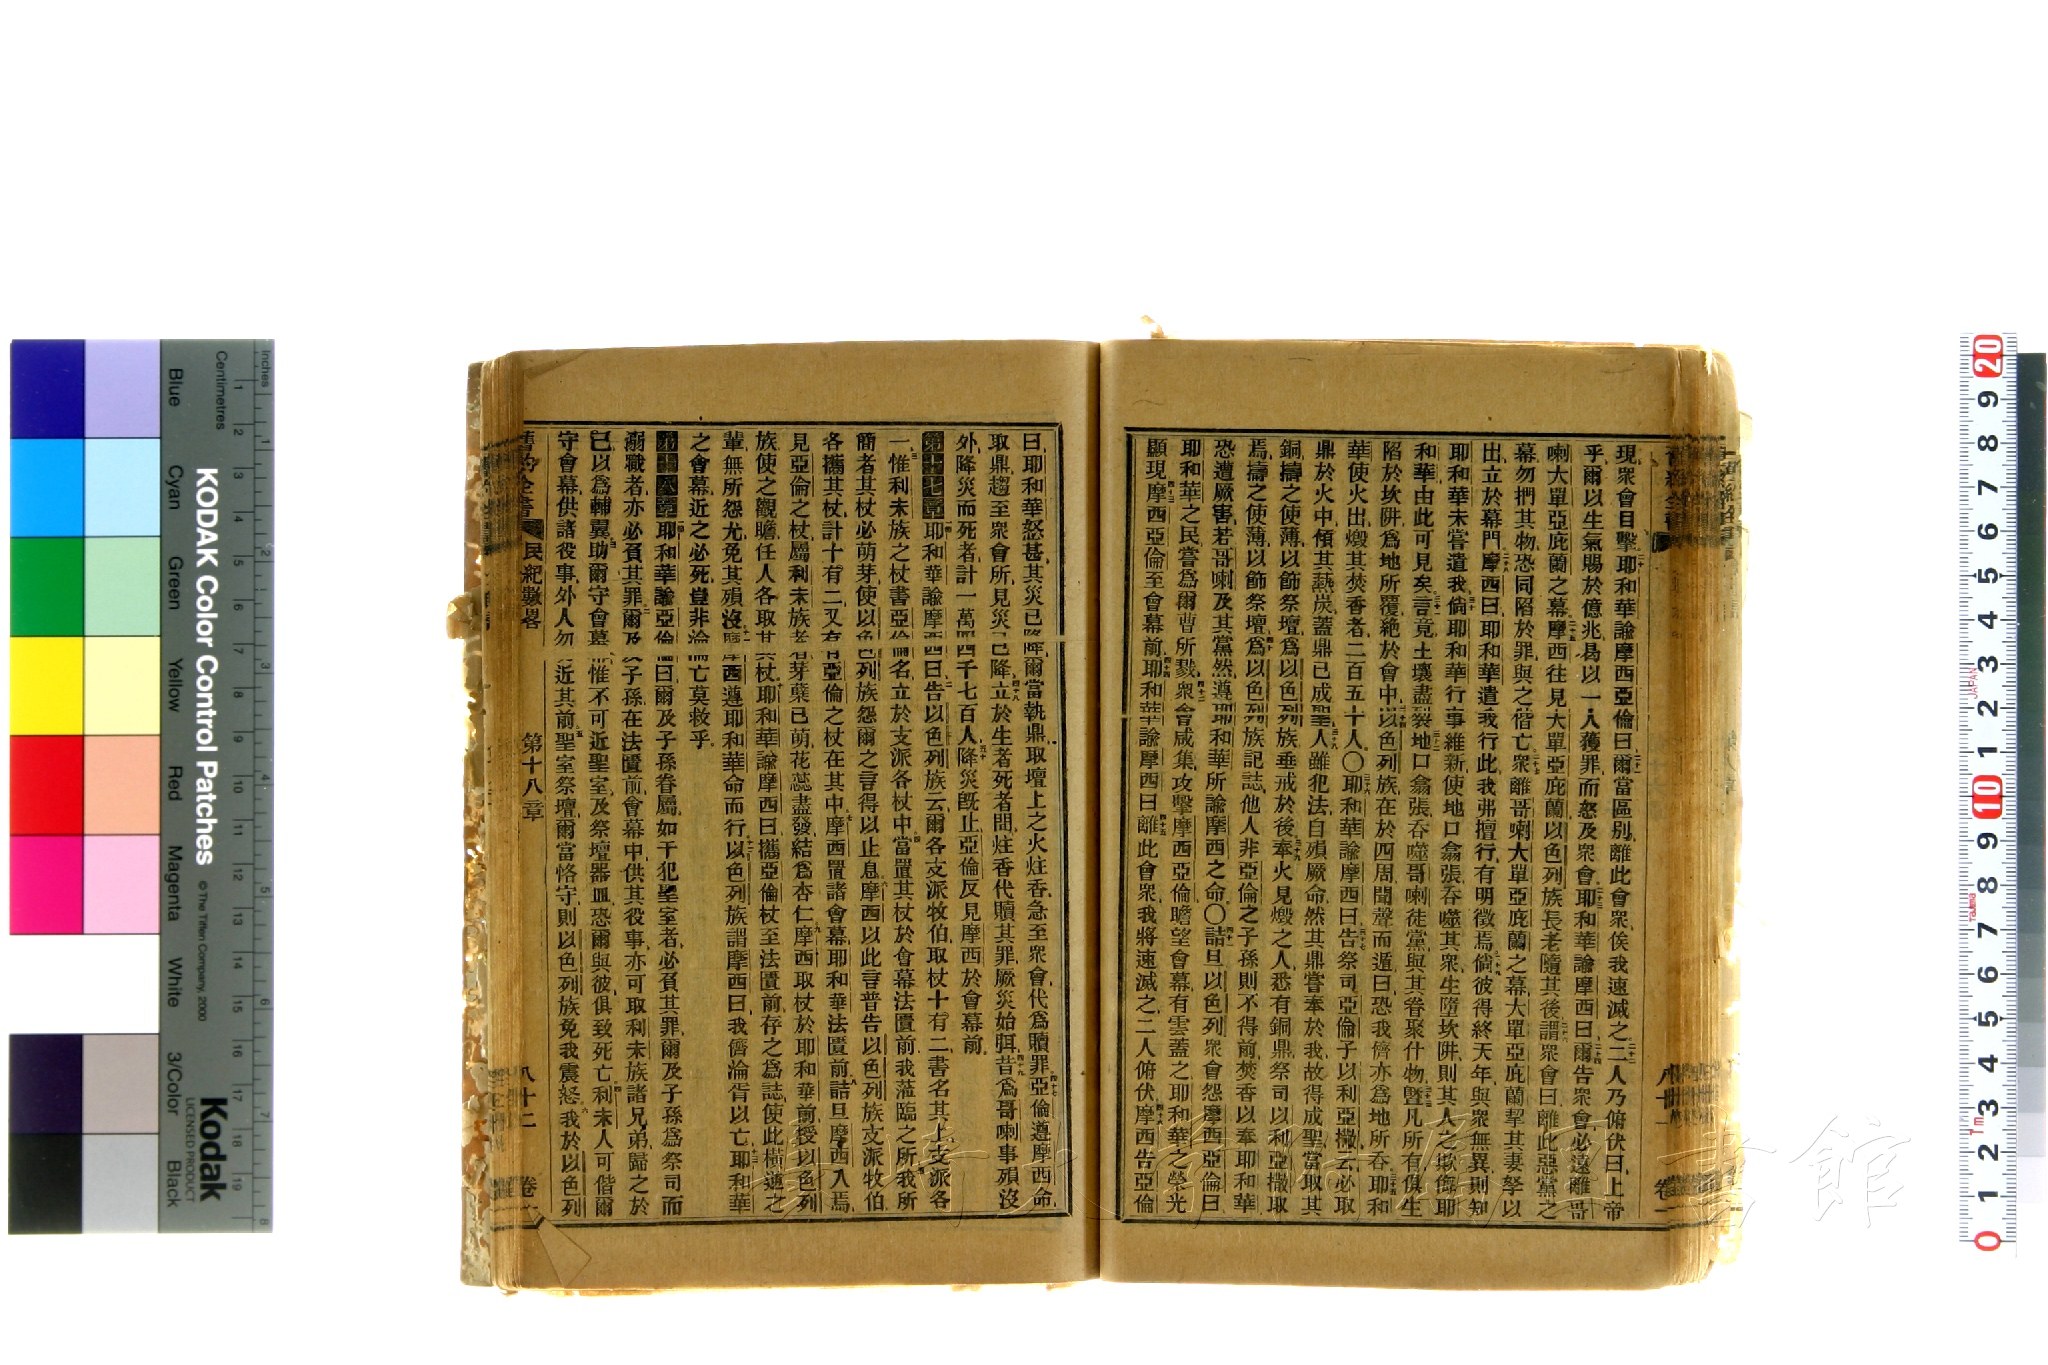 現衆會目擊耶和華諭摩西亞倫曰爾當區別離此會衆俟我速滅之二人乃俯伏曰上帝
乎爾以生氣賜於億兆曷以一人獲罪而怒及衆會耶和華諭摩西曰爾告衆會必遠離哥
喇大單亞庇蘭之幕摩西往見大單亞庇蘭以色列族長老隨其後謂衆會曰離此惡黨之
幕勿捫其物恐同陷於罪與之偕亡衆離哥喇大單亞庇蘭之幕大單亞庇蘭挈其妻孥以
出立於幕門摩西曰耶和華遣我行此我弗擅行有明徵焉倘彼得終天年與衆無異則知
耶和華未嘗遣我倘耶和華行事維新使地口翕張吞噬其衆生墮坎阱則其人之欺侮耶
和華由此可見矣言竟土壤盡裂地口翕張吞噬哥喇徒黨與其眷聚什物曁凡所有俱生
陷於坎阱爲地所覆絕於會中以色列族在於四周聞聲而遁曰恐我儕亦爲地所吞耶和
華使火出燬其焚香者二百五十人〇耶和華諭摩西曰告祭司亞倫子以利亞撒云必取
鼎於火中傾其熱炭蓋鼎已成聖人雖犯法自殞厥命然其鼎嘗奉於我故得成聖當取其
銅擣之使薄以飾祭壇爲以色列族垂戒於後奉火見燬之人悉有銅鼎祭司以利亞撒取
焉擣之使薄以飾祭壇爲以色列族記誌他人非亞倫之子孫則不得前焚香以奉耶和華
恐遭厥害若哥喇及其黨然遵耶和華所諭摩西之命〇詰旦以色列衆會怨摩西亞倫曰
耶和華之民嘗爲爾曹所戮衆會咸集攻擊摩西亞倫瞻望會幕有雲蓋之耶和華之榮光
顯現摩西亞倫至會幕前耶和華諭摩西曰離此會衆我將速滅之二人俯伏摩西告亞倫
八十一
卷一
曰耶和華怒甚其災已降爾當執鼎取壇上之火炷香急至衆會代爲贖罪亞倫遵摩西命
取鼎趨至衆會所見災已降立於生者死者間炷香代贖其罪厥災始弭昔爲哥喇事殞沒
外降災而死者計一萬四千七百人降災旣止亞倫反見摩西於會幕前
第十七章耶和華諭摩西曰告以色列族云爾各支派牧伯取杖十有二書名其上支派各
一惟利未族之杖書亞倫名立於支派各杖中當置其杖於會幕法匱前我蒞臨之所我所
簡者其杖必萌芽使以色列族怨爾之言得以止息摩西以此言普告以色列族支派牧伯
各攜其杖計十有二又有亞倫之杖在其中摩西置諸會幕耶和華法匱前詰旦摩西入焉
見亞倫之杖屬利未族者芽蘖已萌花蕊盡發結爲杏仁摩西取杖於耶和華前授以色列
族使之觀瞻任人各取其杖耶和華諭摩西曰攜亞倫杖至法匱前存之爲誌使此橫逆之
輩無所怨尤免其殞沒摩西遵耶和華命而行以色列族謂摩西曰我儕淪胥以亡耶和華
之會幕近之必死豈非淪亡莫救乎
第十八章耶和華諭亞倫曰爾及子孫眷屬如干犯聖室者必負其罪爾及子孫爲祭司而
溺職者亦必負其罪爾及子孫在法匱前會幕中供其役事亦可取利未族諸兄弟歸之於
已以爲輔翼助爾守會幕惟不可近聖室及祭壇器皿恐爾與彼俱致死亡利未人可偕爾
守會幕供諸役事外人勿近其前聖室祭壇爾當恪守則以色列族免我震怒我於以色列
舊約全書 民紀數畧 第十八章 八十二 卷一